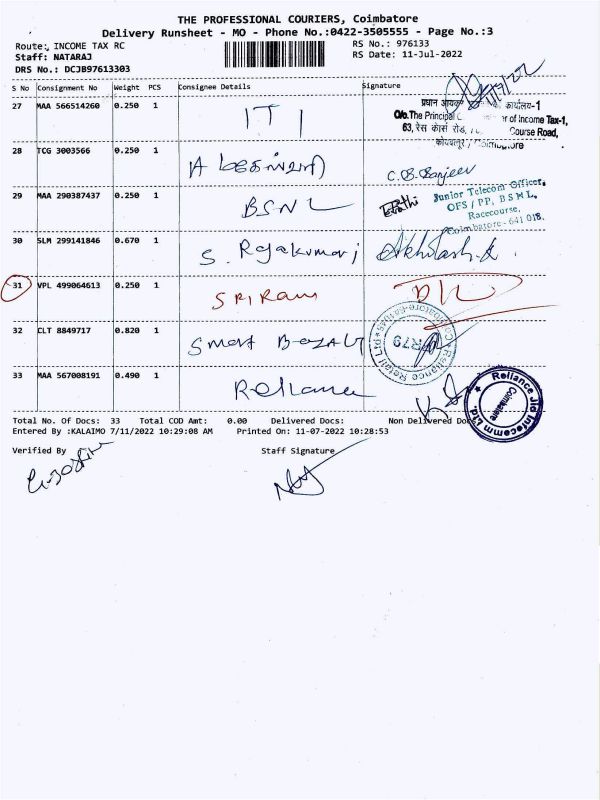 THE PROFESSIONAL COURIERS, Coimbatore
Delivery Runsheet - MO - Phone No.:0422-3505555 - Page No.:3
Route: INCOME TAX RC
RS No.: 976133
Staff: NATARAJ
RS Date: 11-Jul-2022
DRS No.: DCJB97613303
S No Consignment No Weight PCS Consignee Details Signature
27 MAA 566514260 0.250 1 ITI
प्रधान आयकर कार्यालय-1
O/o.The Principal of Income Tax-1,
63, रेस कोर्स रोड, Course Road,
कोयम्बटूर / Coimbatore
28 TCG 3003566 0.250 1 A மகேஸ்வரி C.B.Sanjeev
29 MAA 290387437 0.250 1 BSNL
Junior Telecom Officer,
OFS / PP, B S N L,
Racecourse,
Coimbatore - 641 018.
30 SLM 299141846 0.670 1 S. Rajakumari Akhilash.k
31 VPL 499064613 0.250 1 SRIRam DL
32 CLT 8849717 0.820 1 Smart Bazar
Reliance Retail Ltd
R79
33 MAA 567008191 0.490 1 Reliance
Reliance Jio Infocomm Ltd.
Coimbatore
Total No. Of Docs: 33 Total COD Amt: 0.00 Delivered Docs: Non Delivered Docs
Entered By :KALAIMO 7/11/2022 10:29:08 AM Printed On: 11-07-2022 10:28:53
Verified By Staff Signature